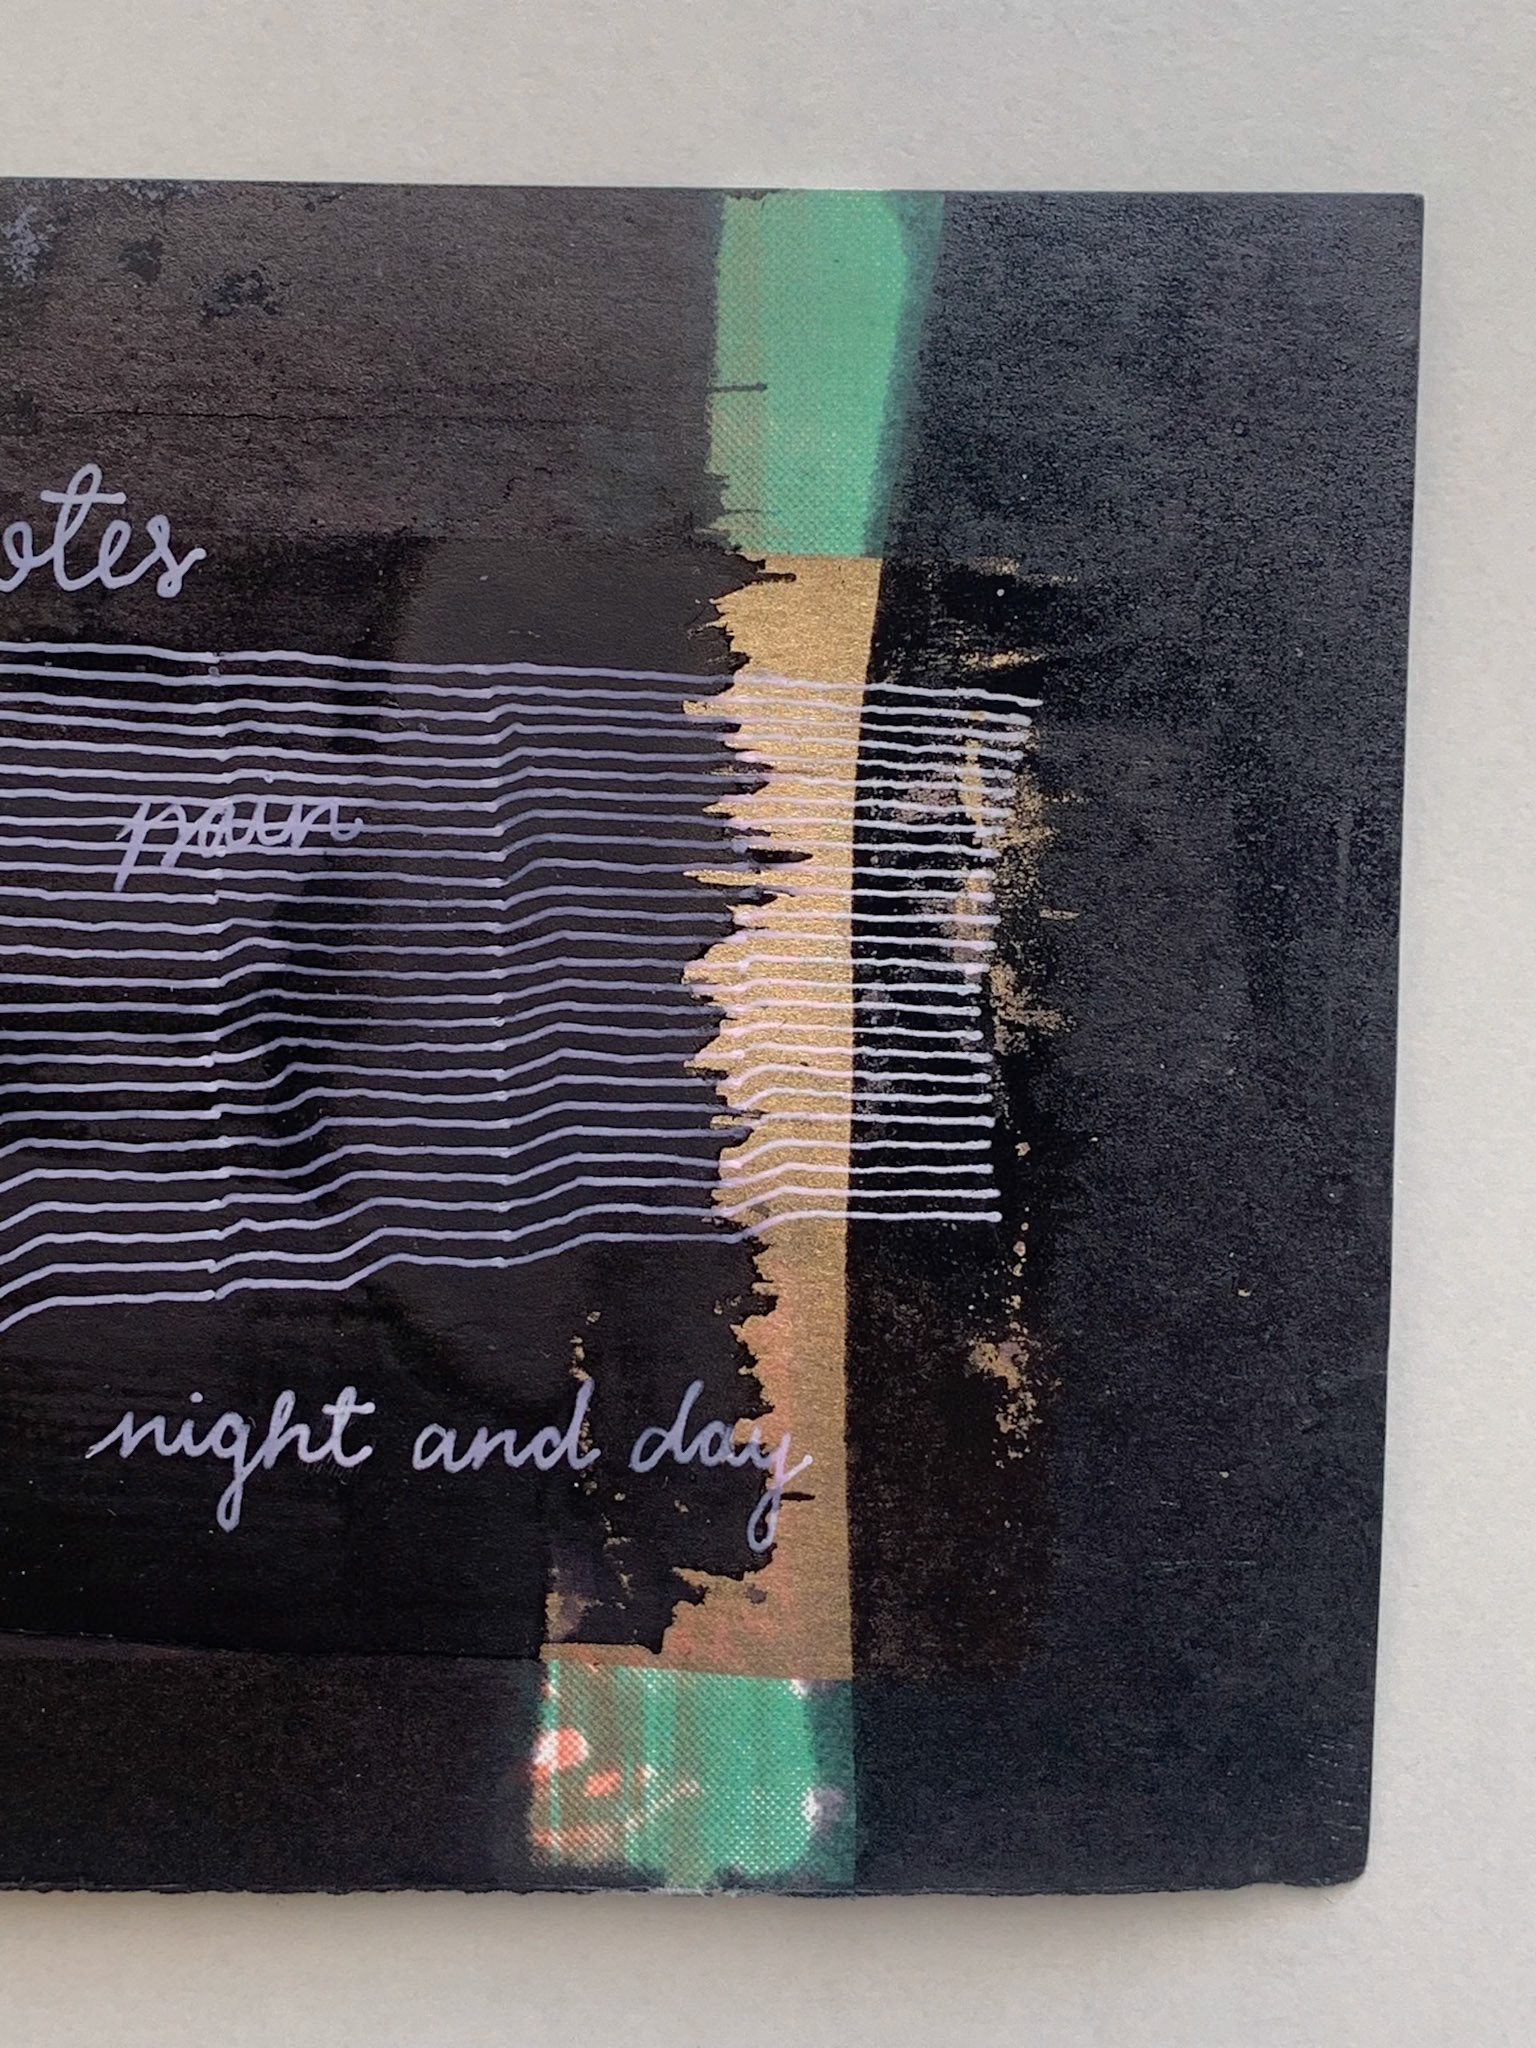 otes
pain
night and day